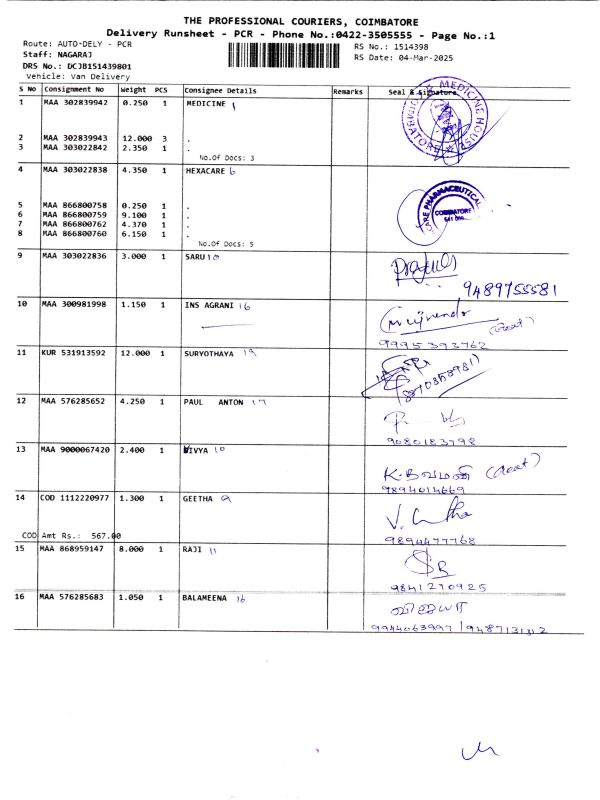 THE PROFESSIONAL COURIERS, COIMBATORE
Delivery Runsheet - PCR - Phone No.:0422-3505555 - Page No.:1
Route: AUTO-DELY - PCR
RS No.: 1514398
Staff: NAGARAJ
RS Date: 04-Mar-2025
DRS No.: DCJB151439801
Vehicle: Van Delivery
S No Consignment No Weight PCS Consignee Details Remarks Seal & Signature
1 MAA 302839942 0.250 1 MEDICINE 1
MEDICINE HOUSE
2 MAA 302839943 12.000 3 .
3 MAA 303022842 2.350 1 .
No.Of Docs: 3
4 MAA 303022838 4.350 1 HEXACARE 6
CARE PHARMACEUTICAL
COIMBATORE
5 MAA 866800758 0.250 1 .
6 MAA 866800759 9.100 1 .
7 MAA 866800762 4.370 1 .
8 MAA 866800760 6.150 1 .
No.Of Docs: 5
9 MAA 303022836 3.000 1 SARU 10
9489755581
10 MAA 300981998 1.150 1 INS AGRANI 16
9995393762
11 KUR 531913592 12.000 1 SURYOTHAYA 19
12 MAA 576285652 4.250 1 PAUL ANTON 17
9080183798
13 MAA 9000067420 2.400 1 VIVYA 10
K.
9894014669
14 COD 1112220977 1.300 1 GEETHA 9
9894477768
COD Amt Rs.: 567.00
15 MAA 868959147 8.000 1 RAJI 11
9841270925
16 MAA 576285683 1.050 1 BALAMEENA 16
விஜயா
9944063997 / 9487131312